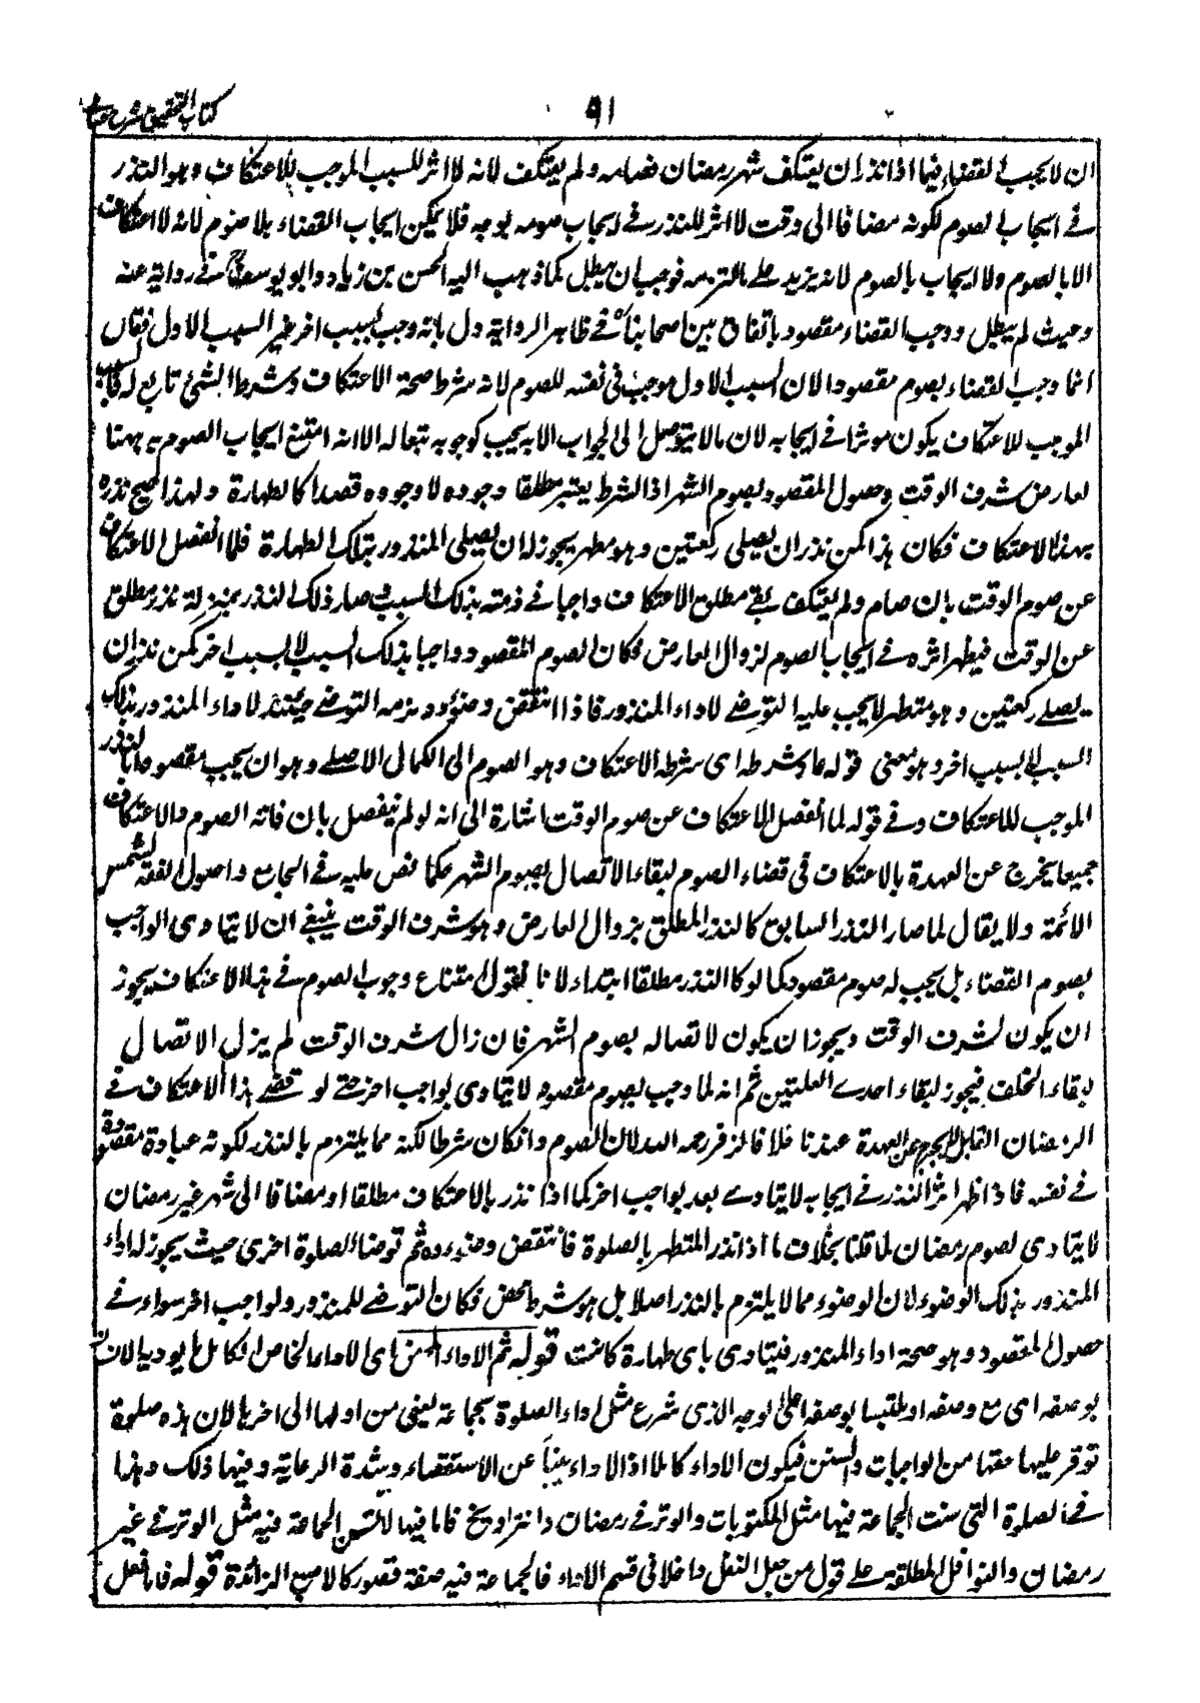 ٩١
كتاب التحقيق شرح حسامى
ان لا يجب القضاء فيما اذا نذر ان يعتكف شهر رمضان فصامه و لم يعتكف لانه لا اثر للسبب الموجب للاعتكاف و هو النذر
فى ايجاب الصوم لكونه مضافا الى وقت لا اثر للنذر فى ايجاب صومه بوجه فلا يمكن ايجاب القضاء بلا صوم لانه لا اعتكاف
الا بالصوم ولا ايجاب بالصوم لانه يزيد على ما التزمه فوجب ان يبطل كما ذهب اليه الحسن بن زياد وابو يوسف فى رواية عنه
وحيث لم يبطل و وجب القضاء بصوم مقصود باتفاق بين اصحابنا فى ظاهر الرواية دل بانه وجب بسبب اخر غير السبب الاول فقال
انما وجب القضاء بصوم مقصود لان السبب الاول موجب فى نفسه للصوم لانه شرط صحة الاعتكاف و شرط الشئ تابع له فالسبب
الموجب للاعتكاف يكون موثرا فى ايجابه لان ما لا يتوصل الى الواجب الا به يجب كوجوبه تبعا له الا انه امتنع ايجاب الصوم به ههنا
لعارض شرف الوقت وحصول المقصود بصوم الشهر اذ الشرط يعتبر مطلقا وجوده لا وجوده قصدا كالطهارة ولهذا صح نذره
بهذا الاعتكاف فكان هذا كمن نذر ان يصلى ركعتين وهو متطهر يجوز له ان يصلى المنذور بتلك الطهارة فلما انفصل الاعتكاف
عن صوم الوقت بان صام ولم يعتكف بقى مطلق الاعتكاف واجبا فى ذمته بذلك السبب صار ذلك النذر بمنزلة نذر مطلق
عن الوقت فيظهر اثره فى ايجاب الصوم لزوال العارض فكان الصوم المقصود واجبا بذلك السبب لا بسبب اخر كمن نذر ان
يصلى ركعتين وهو متطهر لا يجب عليه التوضى لاداء المنذور فاذا انتقض وضوؤه و لزمه التوضى حينئذ لاداء المنذور بذلك
السبب لا بسبب اخر وهو معنى قوله عاد شرطه اى شرط الاعتكاف وهو الصوم الى الكمال الاصلى وهو ان يجب مقصودا بالنذر
الموجب للاعتكاف وفى قوله لما انفصل الاعتكاف عن صوم الوقت اشارة الى انه لو لم ينفصل بان فاته الصوم والاعتكاف
جميعا يخرج عن العهدة بالاعتكاف فى قضاء الصوم لبقاء الاتصال بصوم الشهر حكما نص عليه فى الجامع واصول الفقه لشمس
الائمة ولا يقال لما صار النذر السابق كالنذر المطلق بزوال العارض وهو شرف الوقت ينبغى ان لا يتادى الواجب
بصوم القضاء بل يجب له صوم مقصود كما لو كان النذر مطلقا ابتداء لانا نقول امتناع وجوب الصوم فى هذا الاعتكاف يجوز
ان يكون لشرف الوقت ويجوز ان يكون لاتصاله بصوم الشهر فان زال شرف الوقت لم يزل الاتصال
لبقاء الخلف فيجوز لبقاء احدى العلتين ثم انه لما وجب بصوم مقصود لا يتادى بواجب اخر حتى لو قضى هذا الاعتكاف فى
الرمضان القابل لا يخرج عن العهدة عندنا خلافا لزفر رحمه الله لان الصوم وان كان شرطا لكنه مما يلتزم بالنذر لكونه عبادة مقصودة
فى نفسه فاذا ظهر اثر النذر فى ايجابه لا يتادى بعد بواجب اخر كما اذا نذر بالاعتكاف مطلقا او مضافا الى شهر غير رمضان
لا يتادى بصوم رمضان لما قلنا بخلاف ما اذا نذر المتطهر بالصلوة فانتقض وضوءه ثم توضأ لصلوة اخرى حيث يجوز له اداء
المنذور بذلك الوضوء لان الوضوء مما لا يلتزم بالنذر اصلا بل هو شرط محض فكان التوضى للمنذور ولواجب اخر سواء فى
حصول المقصود وهو صحة اداء المنذور فيتادى باى طهارة كانت قوله ثم الاداء المحض اى الاداء الخاص الكامل ما يوديه الانسان
بوصفه اى مع وصفه او ملتبسا بوصفه على الوجه الذى شرع مثل اداء الصلوة بجماعة يعنى من اولها الى اخرها لان هذه صلوة
توفر عليها حقها من الواجبات والسنن فيكون الاداء كاملا اذ الاداء ينبأ عن الاستقصاء وشدة الرعاية وفيها ذلك وهذا
فى الصلوة التى سنت الجماعة فيها مثل المكتوبات والوتر فى رمضان والتراويح فاما فيما لا تسن الجماعة فيه مثل الوتر فى غير
رمضان والنوافل المطلقة على قول من جعل النفل داخلا فى قسم الاداء فالجماعة فيه صفة قصور كالاصبع الزائدة قوله فاما فعل